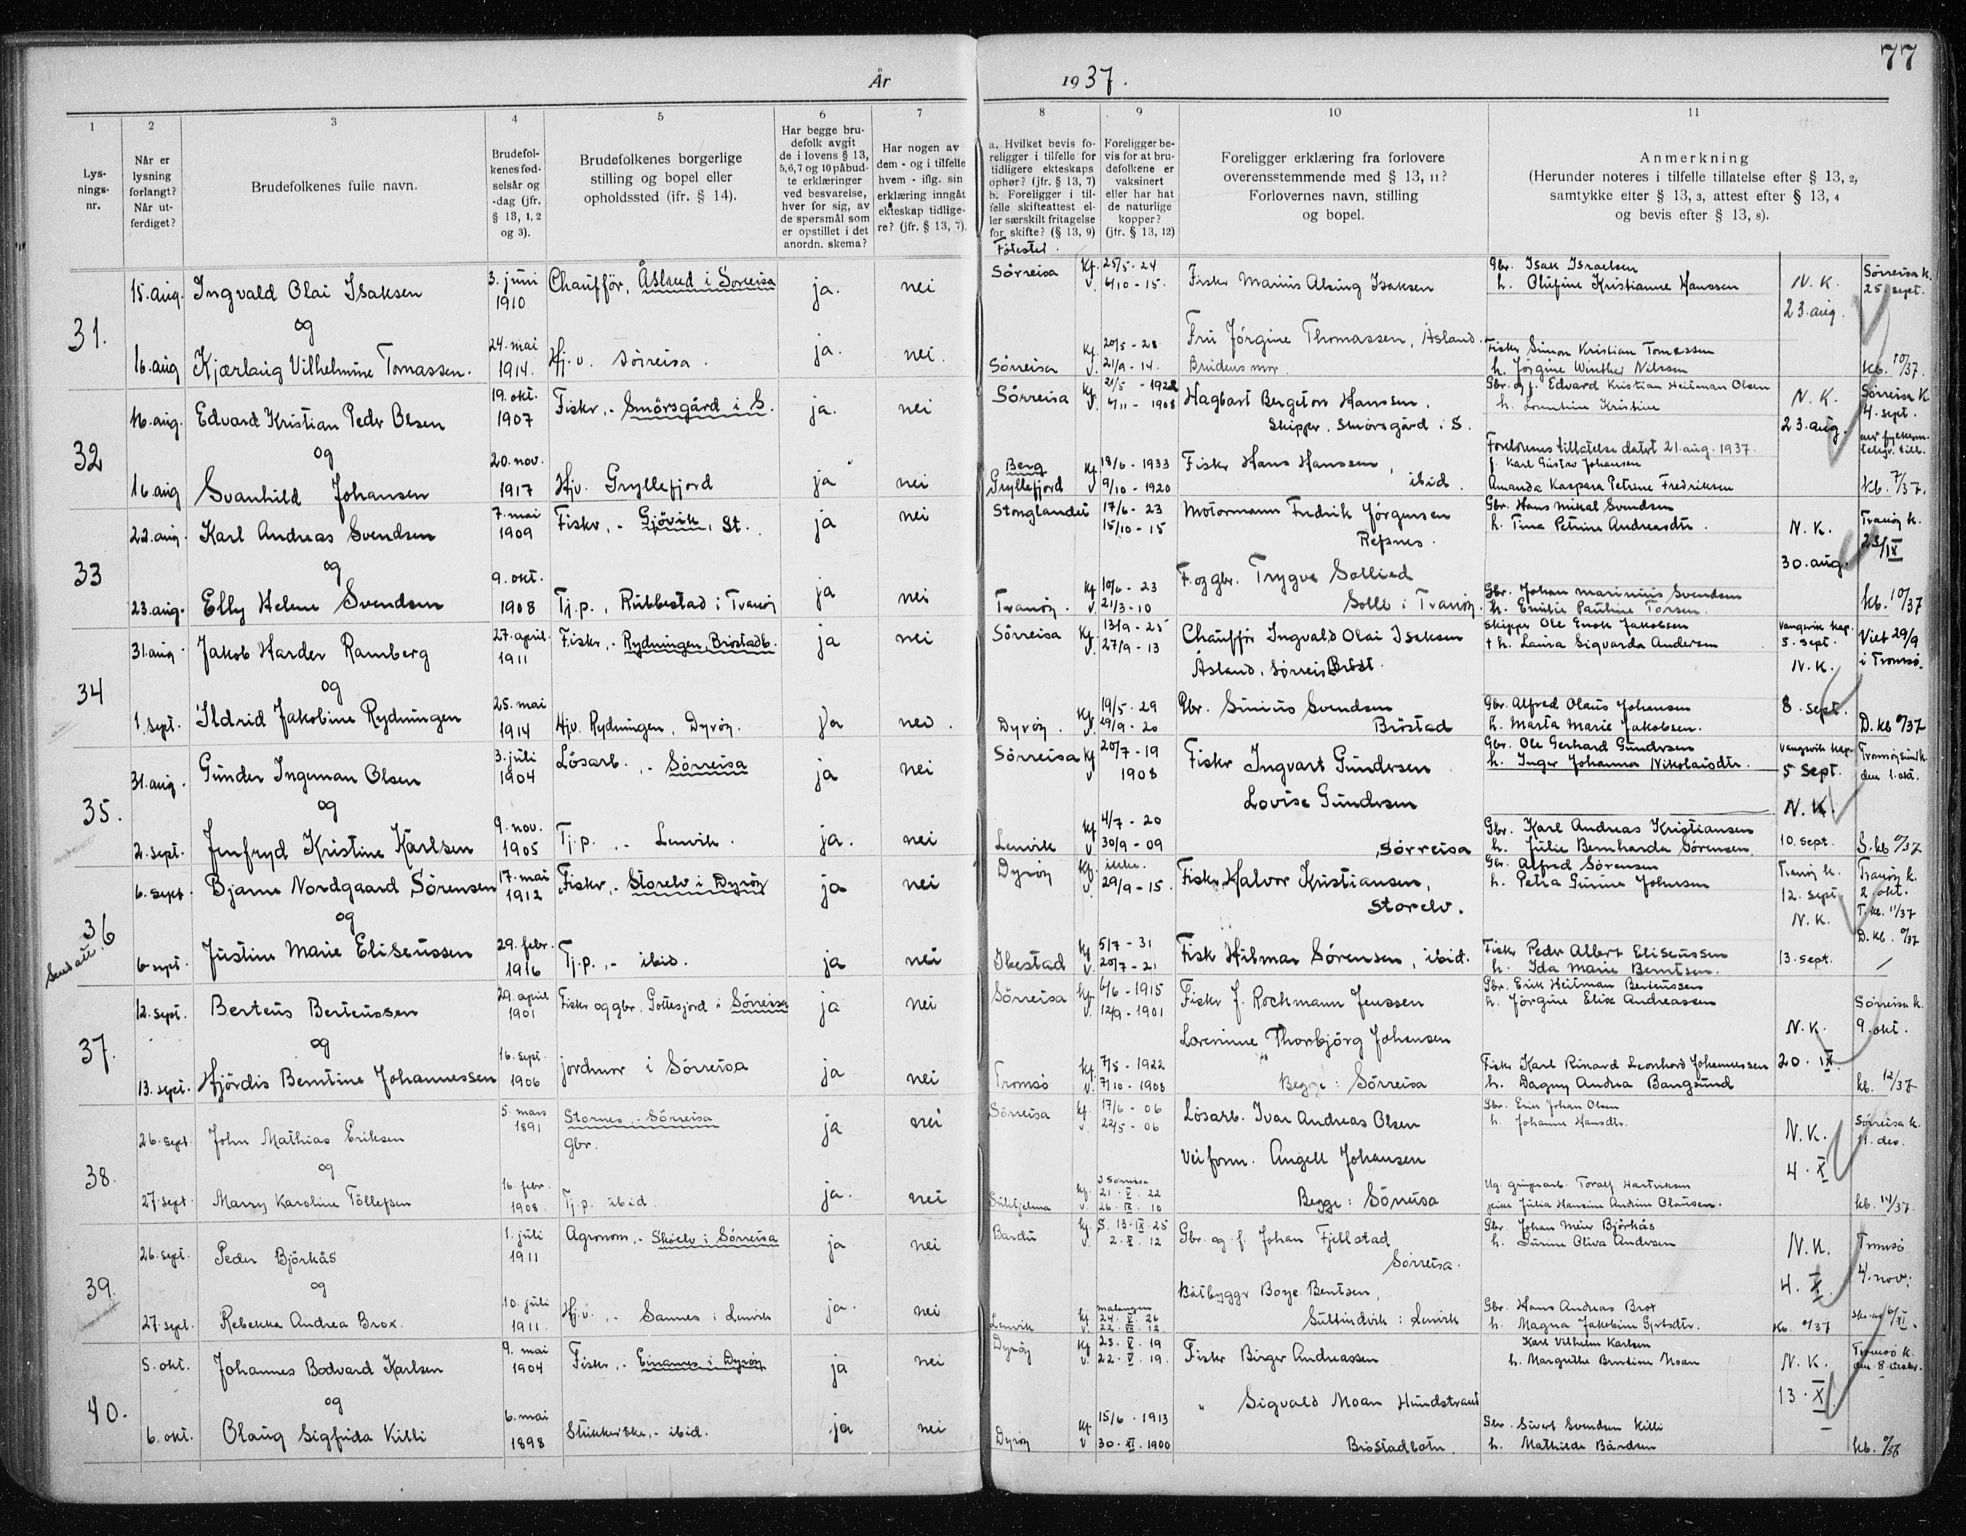 77
År 1937.
1 2 3 4 5 6 7 8 9 10 11
Lysningsnr.
Når er lysning forlangt? Når utferdiget?
Brudefolkenes fulle navn.
Brudefolkenes fødselsår og -dag (jfr. § 13, 1, 2 og 3).
Brudefolkenes borgerlige stilling og bopel eller opholdssted (ifr. § 14).
Har begge brudefolk avgit de i lovens § 13, 5,6,7 og 10 påbudte erklæringer ved besvarelse, hver for sig, av de spørsmål som er opstillet i det anordn. skema?
Har nogen av dem - og i tilfelle hvem - iflg. sin erklæring inngått ekteskap tidligere? (jfr. § 13, 7).
a. Hvilket bevis foreligger i tilfelle for tidligere ekteskaps ophør? (jfr. § 13, 7) b. Foreligger i tilfelle skifteattest eller særskilt fritagelse for skifte? (§ 13, 9)
Foreligger bevis for at brudefolkene er vaksinert eller har hat de naturlige kopper? (jfr. § 13, 12)
Foreligger erklæring fra forlovere overensstemmende med § 13, 11? Forlovernes navn, stilling og bopel.
Anmerkning (Herunder noteres i tilfelle tillatelse efter § 13, 2, samtykke efter § 13, 3, attest efter § 13, 4 og bevis efter § 13, 8).
Fødested.
31.
15. aug. Ingvald Olai Isaksen 3. juni 1910 Chaufför, Åsland i Sörreisa ja. nei Sörreisa Kf. 25/5 - 24 v. 6/10 - 15. Fisker Marius Alsing Isaksen Gbr. Isak Israelsen h. Olufine Kristianne Hanssen N. K. 23. aug. Sörreisa k. 25. sept.
og
16. aug Kjærlaug Vilhelmine Tomassen. 24. mai 1914. Hj. v. Sörreisa. ja. nei. Sörreisa Kf. 20/5 - 28 v. 21/9 - 14. Fru Jörgine Thomassen, Åsland. Brudens mor. Fisker Simon Kristian Tomassen h. Jörgine Winther Nilssen kb. 10/37.
32
16. aug. Edvard Kristian Peder Olsen 19. okt. 1907 Fisker, - Smörsgård i S. ja. nei Sörreisa Kf 21/5 - 1922 v. 6/11 - 1908 Hagbart Bergeton Hanssen, Skipper, Smörsgård i S. Gbr. og f. Edvard Kristian Heitman Olsen h. Lorentine Kristine N. K. 23. aug. Sörreisa K 4. sept.
og
16. aug Svanhild Johansen 20. nov. 1917 Hjv. Gryllefjord ja nei Berg Gryllefjord Kf 18/6 - 1933 v 9/10 - 1920 Fisker Hans Hanssen, ibid. Foreldrenes tillatelse datert 21 aug. 1937. f. Karl Gustav Johansen Amanda Kaspara Petrine Fredriksen kb. 7/37.
33
22. aug. Karl Andreas Svendsen 7. mai 1909 Fisker, - Gjövik, St. ja nei Stonglandet 17/6 - 23 15/10 - 15 Motormann Fredrik Jörgensen Refsnes. Gbr. Hans Mikal Svendsen h. Tina Petrine Andreasdtr. N. K. 30. aug. Tranöy k. 25/IX
og
23. aug. Elly Helene Svendsen 9. okt. 1908 Tj. p., Rubbestad i Tranöy ja nei Tranöy. Kf. 10/6 - 23 v. 21/3 - 10 F. og gbr. Trygve Sollied Solli i Tranöy. Gbr. Johan Marinius Svendsen h. Emilie Pauline Torsen. kb. 10/37
34
31. aug. Jakob Harder Ramberg 27. april 1911 Fisker, - Rydningen, Brostadb. ja nei Sörreisa Kf. 13/9 - 25 v. 27/9 - 13 Chaufför Ingvald Olai Isaksen Åsland, Sörreisa Skipper Ole Enok Jakobsen + h. Laura Sigvarda Andersen Vangsvik kap. 5. sept. N. K. Viet 29/9 i Tromsö.
og
1. sept. Ildrid Jakobine Rydningen 25. mai 1914 Hjv. Rydningen, Dyröy. ja nei. Dyröy. Kf. 19/5 - 29 v. 29/9 - 20 Gbr. Sinius Svendsen Bröstad Gbr. Alfred Olaus Johansen h. Marta Marie Jakobsen. 8. sept. D. kb 0/37
35.
31. aug. Gunder Ingeman Olsen 3. juli 1904 Lösarb., - Sörreisa ja nei Sörreisa Kf 20/7 - 19 v 1908 Fisker Ingvart Gundersen Lovise Gundersen Gbr. Ole Gerhard Gundersen h. Inger Johanna Nikolaisdtr. Vangsvik kap. 5 sept. N. K. Tromsöysund k. den 1. okt.
og
2. sept. Jenfryd Kristine Karlsen 9. nov. 1905 Tj. p. ,- Lenvik. ja. nei Lenvik Kf 4/7 - 20 v 30/9 - 09 Sörreisa Gbr. Karl Andreas Kristiansen h. Julie Bernharda Sörensen. 10. sept. S. kb 0/37
36 Send att.
6. sept Bjarne Nordgaard Sörensen 17. mai 1912 Fisker, - Storelv i Dyröy ja nei Dyröy Kf. ikke. v. 29/9 - 15. Fisker Halvor Kristiansen, Storelv. Gbr. Alfred Sörensen h. Petra Gurine Johnsen Tranöy k. 12. sept. N. K. Tranöy k. 2. okt. T. kb. 11/37 D. kb. 0/37
og
6 sept. Justine Marie Eliseussen 29. febr. 1916 Tj. p., - ibid. ja nei Ibestad Kf 5/7 - 31 v. 20/7 - 21 Fisk Hilmar Sörensen, ibid. Fisker Peder Albert Eliseussen h. Ida Marie Berntsen. 13. sept.
37.
12. sept. Berteus Berteussen 29. april 1901 Fisker og gbr. Gottesjord i Sörreisa ja nei Sörreisa kf. 6/6 - 1915 v. 12/9 - 1901 Fisker J. Rockmann Jenssen Gbr. Erik Heitman Berteussen h. Jörgine Elise Andreassen N. K. Sörreisa k. 9. okt.
og
13. sept. Hjördis Berntine Johannessen 16. sept. 1906 jordmor i Sörreisa ja nei Tromsö kf. 7/5 - 1922 v. 7/10 - 1908 Thorbjörg Johansen Begge: Sörreisa Fisker Karl Rinard Leonhard Johannessen h. Dagny Andrea Bangsund 20. IX. kb. 12/37
38.
26. sept. John Mathias Eriksen 5. mars 1891 Stornes, - Sörreisa Gbr. ja nei Sörreisa kf. 17/6 - 06 v. 22/5 - 06 Lösarb. Ivar Andreas Olsen Gbr. Erik Johan Olsen h. Johanne Hansdtr. N. K. 4. X Sörreisa k. 11. des.
og
27. sept. Marry Karoline Töllefsen 16. febr. 1908. Tj. p. ibid. ja. nei Sulitjelma i Sörreisa kf. 21. V. 22 v. 26. IX. 10 Veiform. Angell Johansen Begge: Sörreisa Toralf Hartviksen Julia Hansine Andrine Olausen. kb. 14/37.
39.
26. sept. Peder Björkås 1. juli 1911 Agronom, - Skøelv i Sörreisa ja nei Bardu kf. S. 13. IX. 25 v. 2. X. 12 Gbr. og f. Johan Fjellstad Sörreisa. Gbr. Johan Meier Björkås h. Gurine Oliva Andersen N. K. 4. X Tromsö 4. nov.
og
27. sept. Rebekka Andrea Brox. 10. juli 1911. Hj. v. - Sannes i Lenvik ja. nei Lenvik Malangen kf 24. V. 26 v. 22. IX. 12. Båtbygger Boye Bentsen, Sultindvik i Lenvik Gbr. Hans Andreas Brox h. Magna Jakobine Gjertsdtr. kb. 0/37
40.
5. okt. Johannes Bodvard Karlsen 9. mai 1904 Fisker, - Einanes i Dyröy ja nei Dyröy Kf 25. V. 19 v. 22. V. 19. Fisker Birger Andreassen Karl Vilhelm Karlsen h. Margrethe Berntine Moan N. K. 13. X Tromsö k. den 8. desbr.
og
6. okt. Olaug Sigfrida Killi 6. mai 1898 Strikkerske, - ibid. ja nei Dyröy Kf 15/6 - 1913 v 30. XI. 1900 " Sigvald Moan Hundstrand Bröstadbotn. Gbr. Sivert Svendsen Killi h. Mathilde Bårdsen kb. 0/36